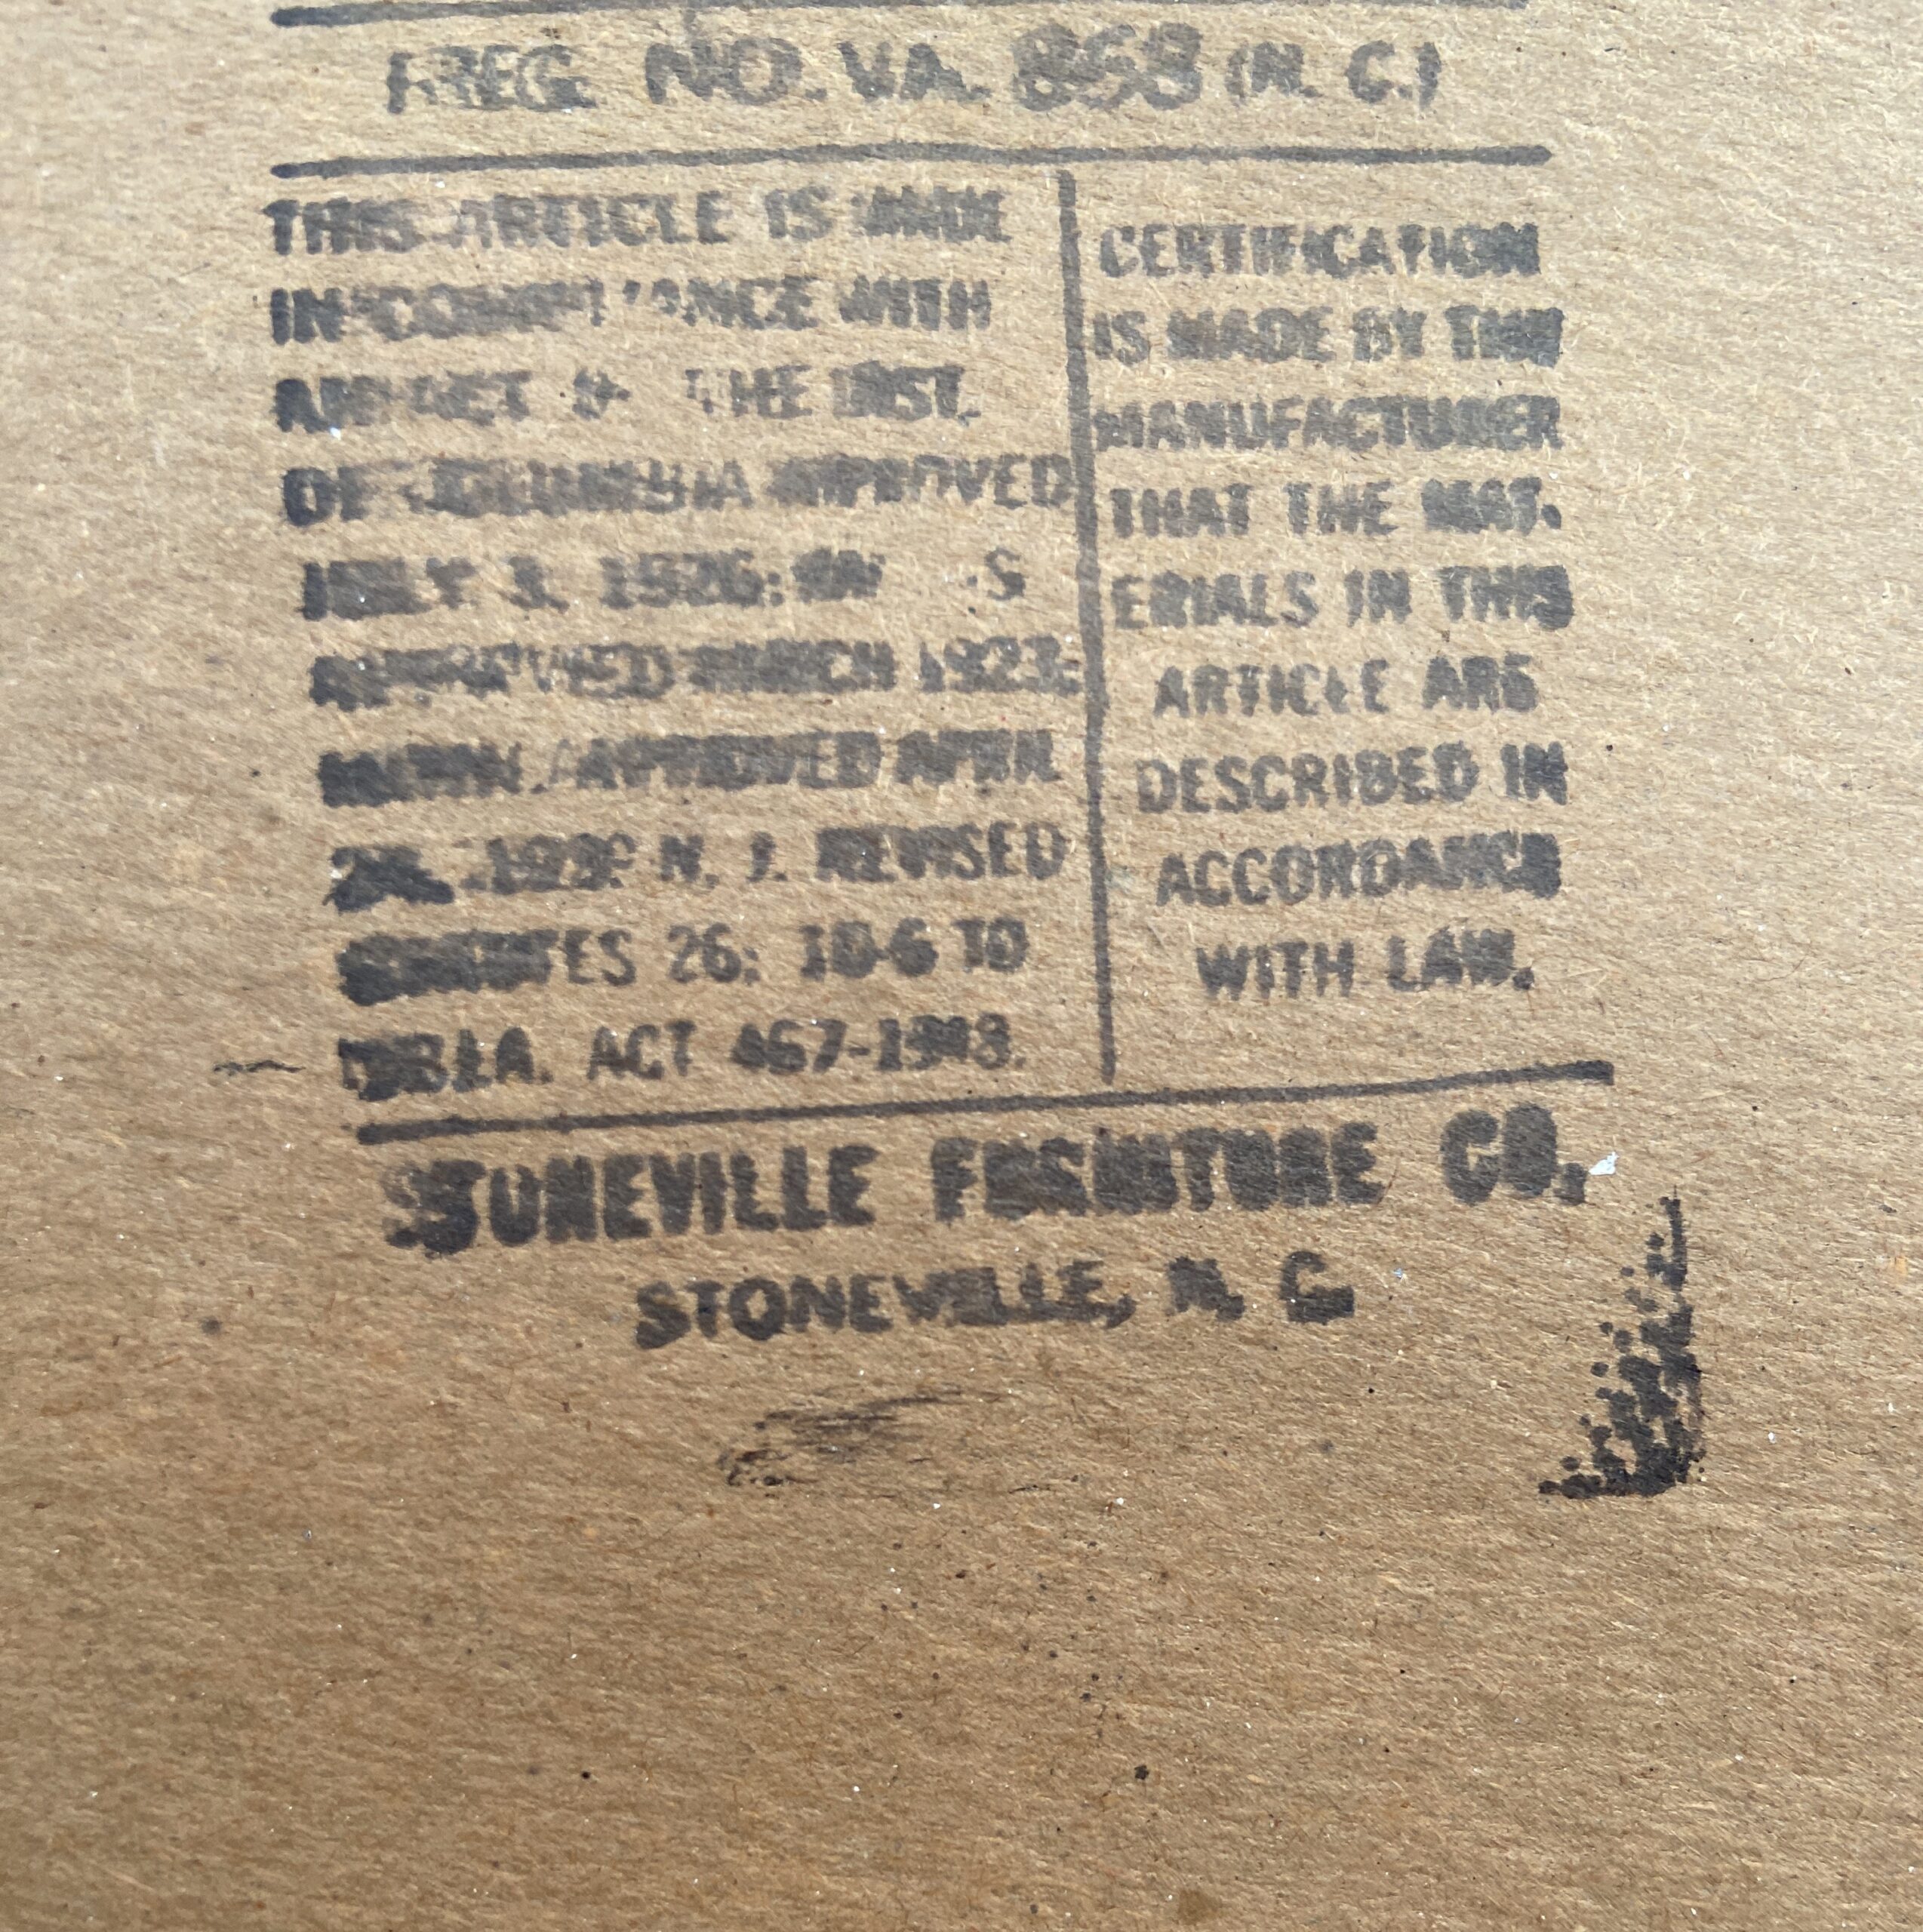 REG. NO. VA. 868 (N. C.)
THIS ARTICLE IS MADE
IN COMPLIANCE WITH
AN ACT THE DIST.
OF COLUMBIA APPROVED
JULY 3, 1926:
APPROVED MARCH 1923:
MINN. APPROVED APRIL
24, N. J. REVISED
STATUTES 26: 10-6 TO
ACT 467-1948.
CERTIFICATION
IS MADE BY THE
MANUFACTURER
THAT THE MAT-
ERIALS IN THIS
ARTICLE ARE
DESCRIBED IN
ACCORDANCE
WITH LAW.
STONEVILLE FURNITURE CO.
STONEVILLE, N. C.